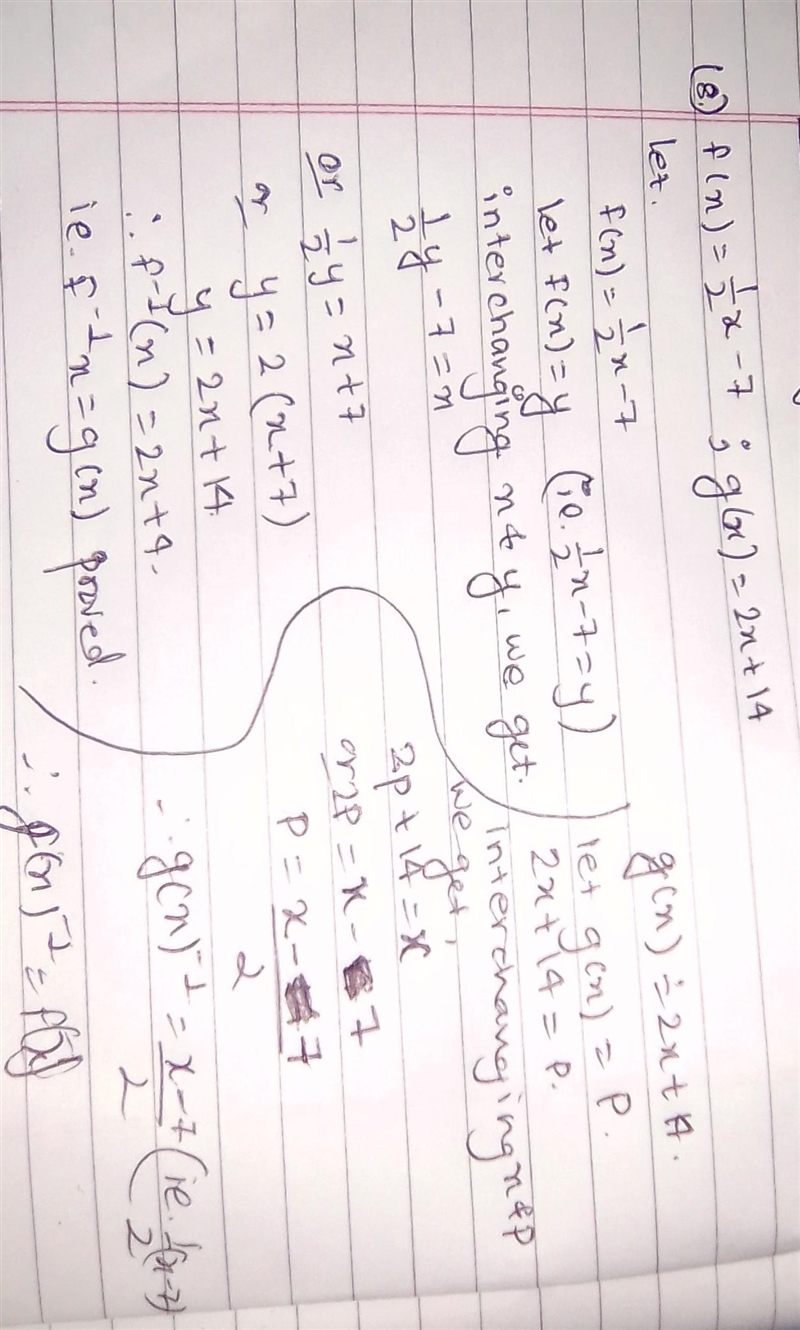 (8.) f(n) = 1/2 x - 7 ; g(x) = 2n + 14
let.
f(n) = 1/2 x - 7
let f(n) = y (ie. 1/2 x - 7 = y)
interchanging n & y, we get.
1/2 y - 7 = n
or 1/2 y = n + 7
or y = 2 (n + 7)
y = 2n + 14
∴ f⁻¹(n) = 2n + 4.
ie. f⁻¹n = g(n) proved.
g(n) = 2n + 14.
let g(n) = P.
2x + 14 = P.
interchanging n & p
we get,
2p + 14 = x
or 2P = x - 7
P = x - 7 / 2
∴ g(n)⁻¹ = x - 7 / 2 (ie. 1/2 (x - 7)
∴ g(n)⁻¹ = f(x)